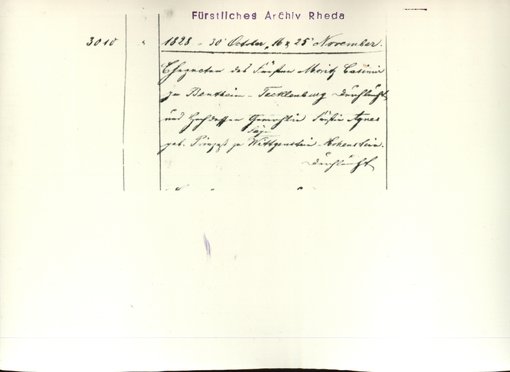 Fürstliches Archiv Rheda
3010 " 1828 - 30 October, 16 & 25 November.
Ehepacten des Fürsten Moritz Casimir
zu Bentheim-Tecklenburg Durchlaucht
und Hochdessen Gemahlin Fürstin Agnes
geb. Prinzeß zu Sayn
Wittgenstein-Hohenstein.
Durchlaucht